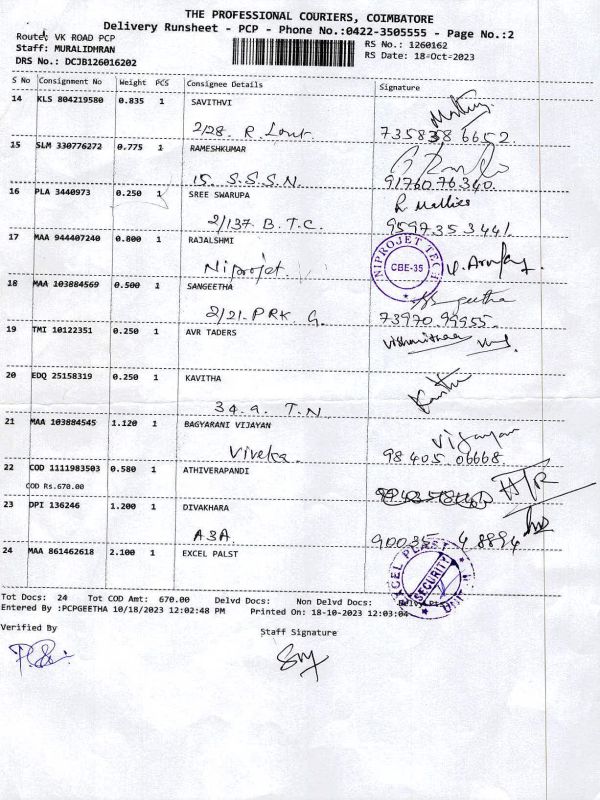 THE PROFESSIONAL COURIERS, COIMBATORE
Delivery Runsheet - PCP - Phone No.:0422-3505555 - Page No.:2
Route: VK ROAD PCP
RS No.: 1260162
Staff: MURALIDHRAN
RS Date: 18-Oct-2023
DRS No.: DCJB126016202
S No Consignment No Weight PCS Consignee Details Signature
14 KLS 804219580 0.835 1 SAVITHVI
2/28. R. 7358386652
15 SLM 330776272 0.775 1 RAMESHKUMAR
15. S.S.S.N. 9176076340
16 PLA 3440973 0.250 1 SREE SWARUPA
2/137. B.T.C. 9597353441
17 MAA 944407240 0.800 1 RAJALSHMI
Niprojet
NIPROJET TECH
CBE-35
18 MAA 103884569 0.500 1 SANGEETHA
2/21. PRK. G. 73970 99955
19 TMI 10122351 0.250 1 AVR TADERS
20 EDQ 25158319 0.250 1 KAVITHA
34.a. T.N
21 MAA 103884545 1.120 1 BAGYARANI VIJAYAN
Vijayan
Viveka. 98 405 06668
22 COD 1111983503 0.580 1 ATHIVERAPANDI
COD Rs.670.00
H/R
23 DPI 136246 1.200 1 DIVAKHARA
A3A 90035 48894
24 MAA 861462618 2.100 1 EXCEL PALST
EXCEL PLAST
SECURITY
Tot Docs: 24 Tot COD Amt: 670.00 Delvd Docs: Non Delvd Docs:
Entered By :PCPGEETHA 10/18/2023 12:02:48 PM Printed On: 18-10-2023 12:03:04
Verified By
Staff Signature